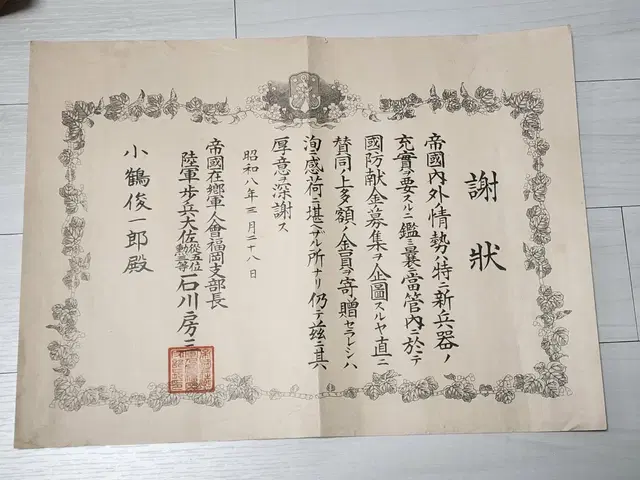 謝状
帝國内外ノ情勢ハ特ニ新兵器ノ
充實ヲ要スルニ鑑ミ曩ニ當管内ニ於テ
國防献金ノ募集ヲ企圖スルヤ直ニ
賛同ノ上多額ノ金員ヲ寄贈セラレシハ
洵ニ感荷ニ堪ヘザル所ナリ仍テ茲ニ其
厚意ヲ深謝ス
昭和八年三月二十八日
帝國在郷軍人會福岡支部長
陸軍歩兵大佐從五位勲三等石川二房三
小鶴俊一郎殿